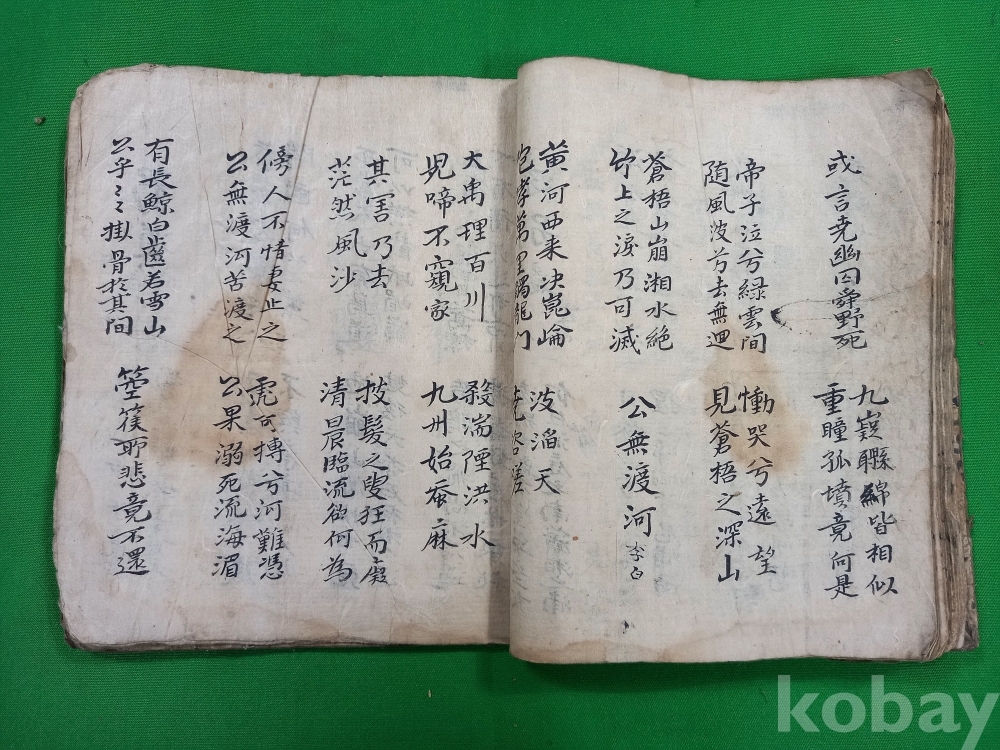 或言尭幽囚舜野死
九嶷聯綿皆相似
重瞳孤墳竟何是
帝子泣兮綠雲間
隨風波兮去無迴
慟哭兮遠望
見蒼梧之深山
蒼梧山崩湘水絶
竹上之淚乃可滅
公無渡河 李白
黄河西来决崑崙
咆哮萬里觸龍門
波滔天
尭咨嗟
大禹理百川
児啼不窺家
殺湍陻洪水
九州始蚕麻
其害乃去
茫然風沙
披髮之叟狂而癡
清晨臨流欲何為
傍人不惜妻止之
公無渡河苦渡之
虎可搏兮河難憑
公果溺死流海湄
有長鯨白齒若雪山
公乎〻〻掛骨於其間
箜篌所悲竟不還
kobay